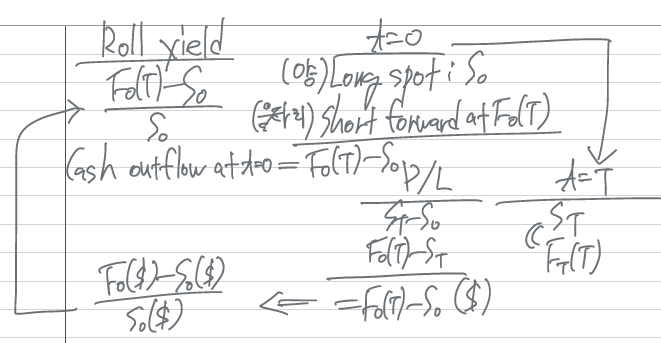 Roll yield
F₀(T)-S₀
S₀
t=0
(양) Long spot : S₀
Short forward at F₀(T)
Cash outflow at t=0 = F₀(T)-S₀
P/L
t=T
S_T-S₀
S_T
F₀(T)-S_T
F_T(T)
=F₀(T)-S₀ ($)
⇐
F₀($)-S₀($)
S₀($)